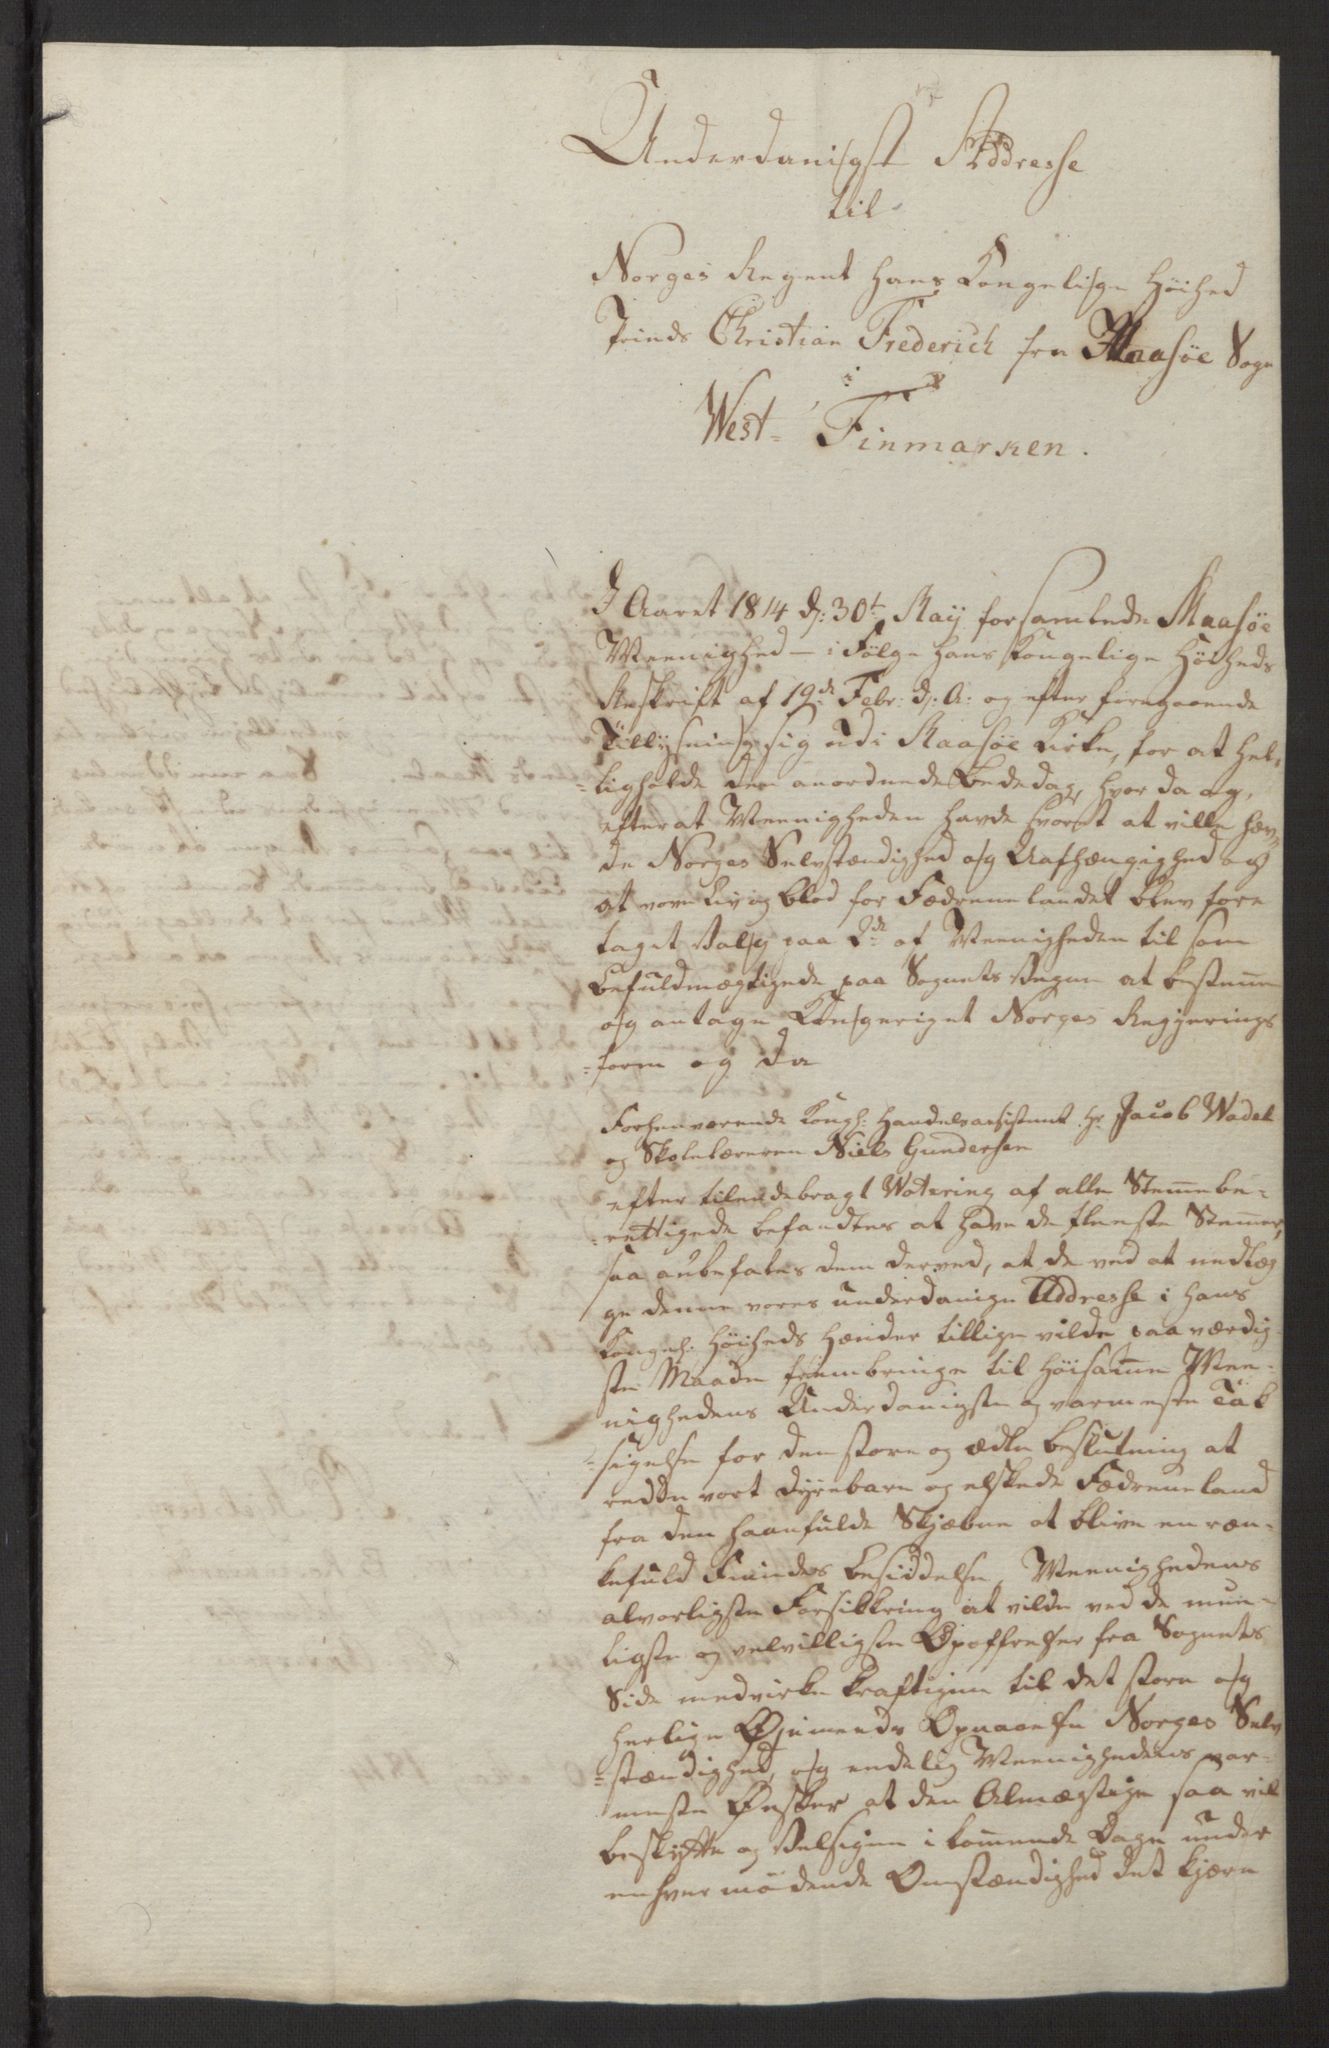 Underdanigst Addresse
til
Norges Regent Hans Kongelige Höihed
Prinds Christian Frederich fra Maasöe Sogn
i
West- Finmarken.
I Aaret 1814 d: 30t May forsamlede Maasöe
Meenighed – i Fölge Hans Kongelige Höiheds
Reskript af 19de Febr: d: A: og efter foregaaende
Tillysning sig udi Maasöe Kirke, for at hel-
-ligholde den anordnede Bededag, hvor da og,
efter at Meenigheden havde svoret at ville hæv-
de Norges Selvstændighed og Uafhængighed og
at vove Liv og Blod for Fædrenelandet blev fore
taget Valg paa 2de af Meenigheden til som
Befuldmægtigede paa Sognets Vegne at bestemme
og antage Kongeriget Norges Regjerings
-form og da
Forhenværende Kongl: Handelsassistent Hr Jacob Wadel
og Skolelæreren Niels Gundersen
efter tilendebragt Votering af alle Stemmebe-
-rettigede befandtes at have de fleeste Stemmer,
saa anbefales dem derved, at de ved at nedlæg
ge denne vores underdanige Addresse i Hans
Kongel: Höiheds Hænder tillige vilde paa værdig
ste Maade frembringe til Höisamme Mee-
nighedens Underdanigste og varmeste Tak
-sigelse for den store og ædle Beslutning at
redde vort dyrebare og elskede Fædreneland
fra den haanfulde Skjæbne at blive en ræn-
kefuld Fiendes Besiddelse, Meenighedens
alvorligste Forsikkring at vilde ved de muu-
ligste og velvilligste Opoffrelser fra Sognets
Side medvirke kraftigen til det store og
herlige Öjemeeds Opnaaelse Norges Selv
-stændighed, og endelig Meenighedens var-
meste Önsker at den Almægtige saa vil
beskytte og Velsigne i kommende Dage under
enhver mödende Omstændighed det kjære